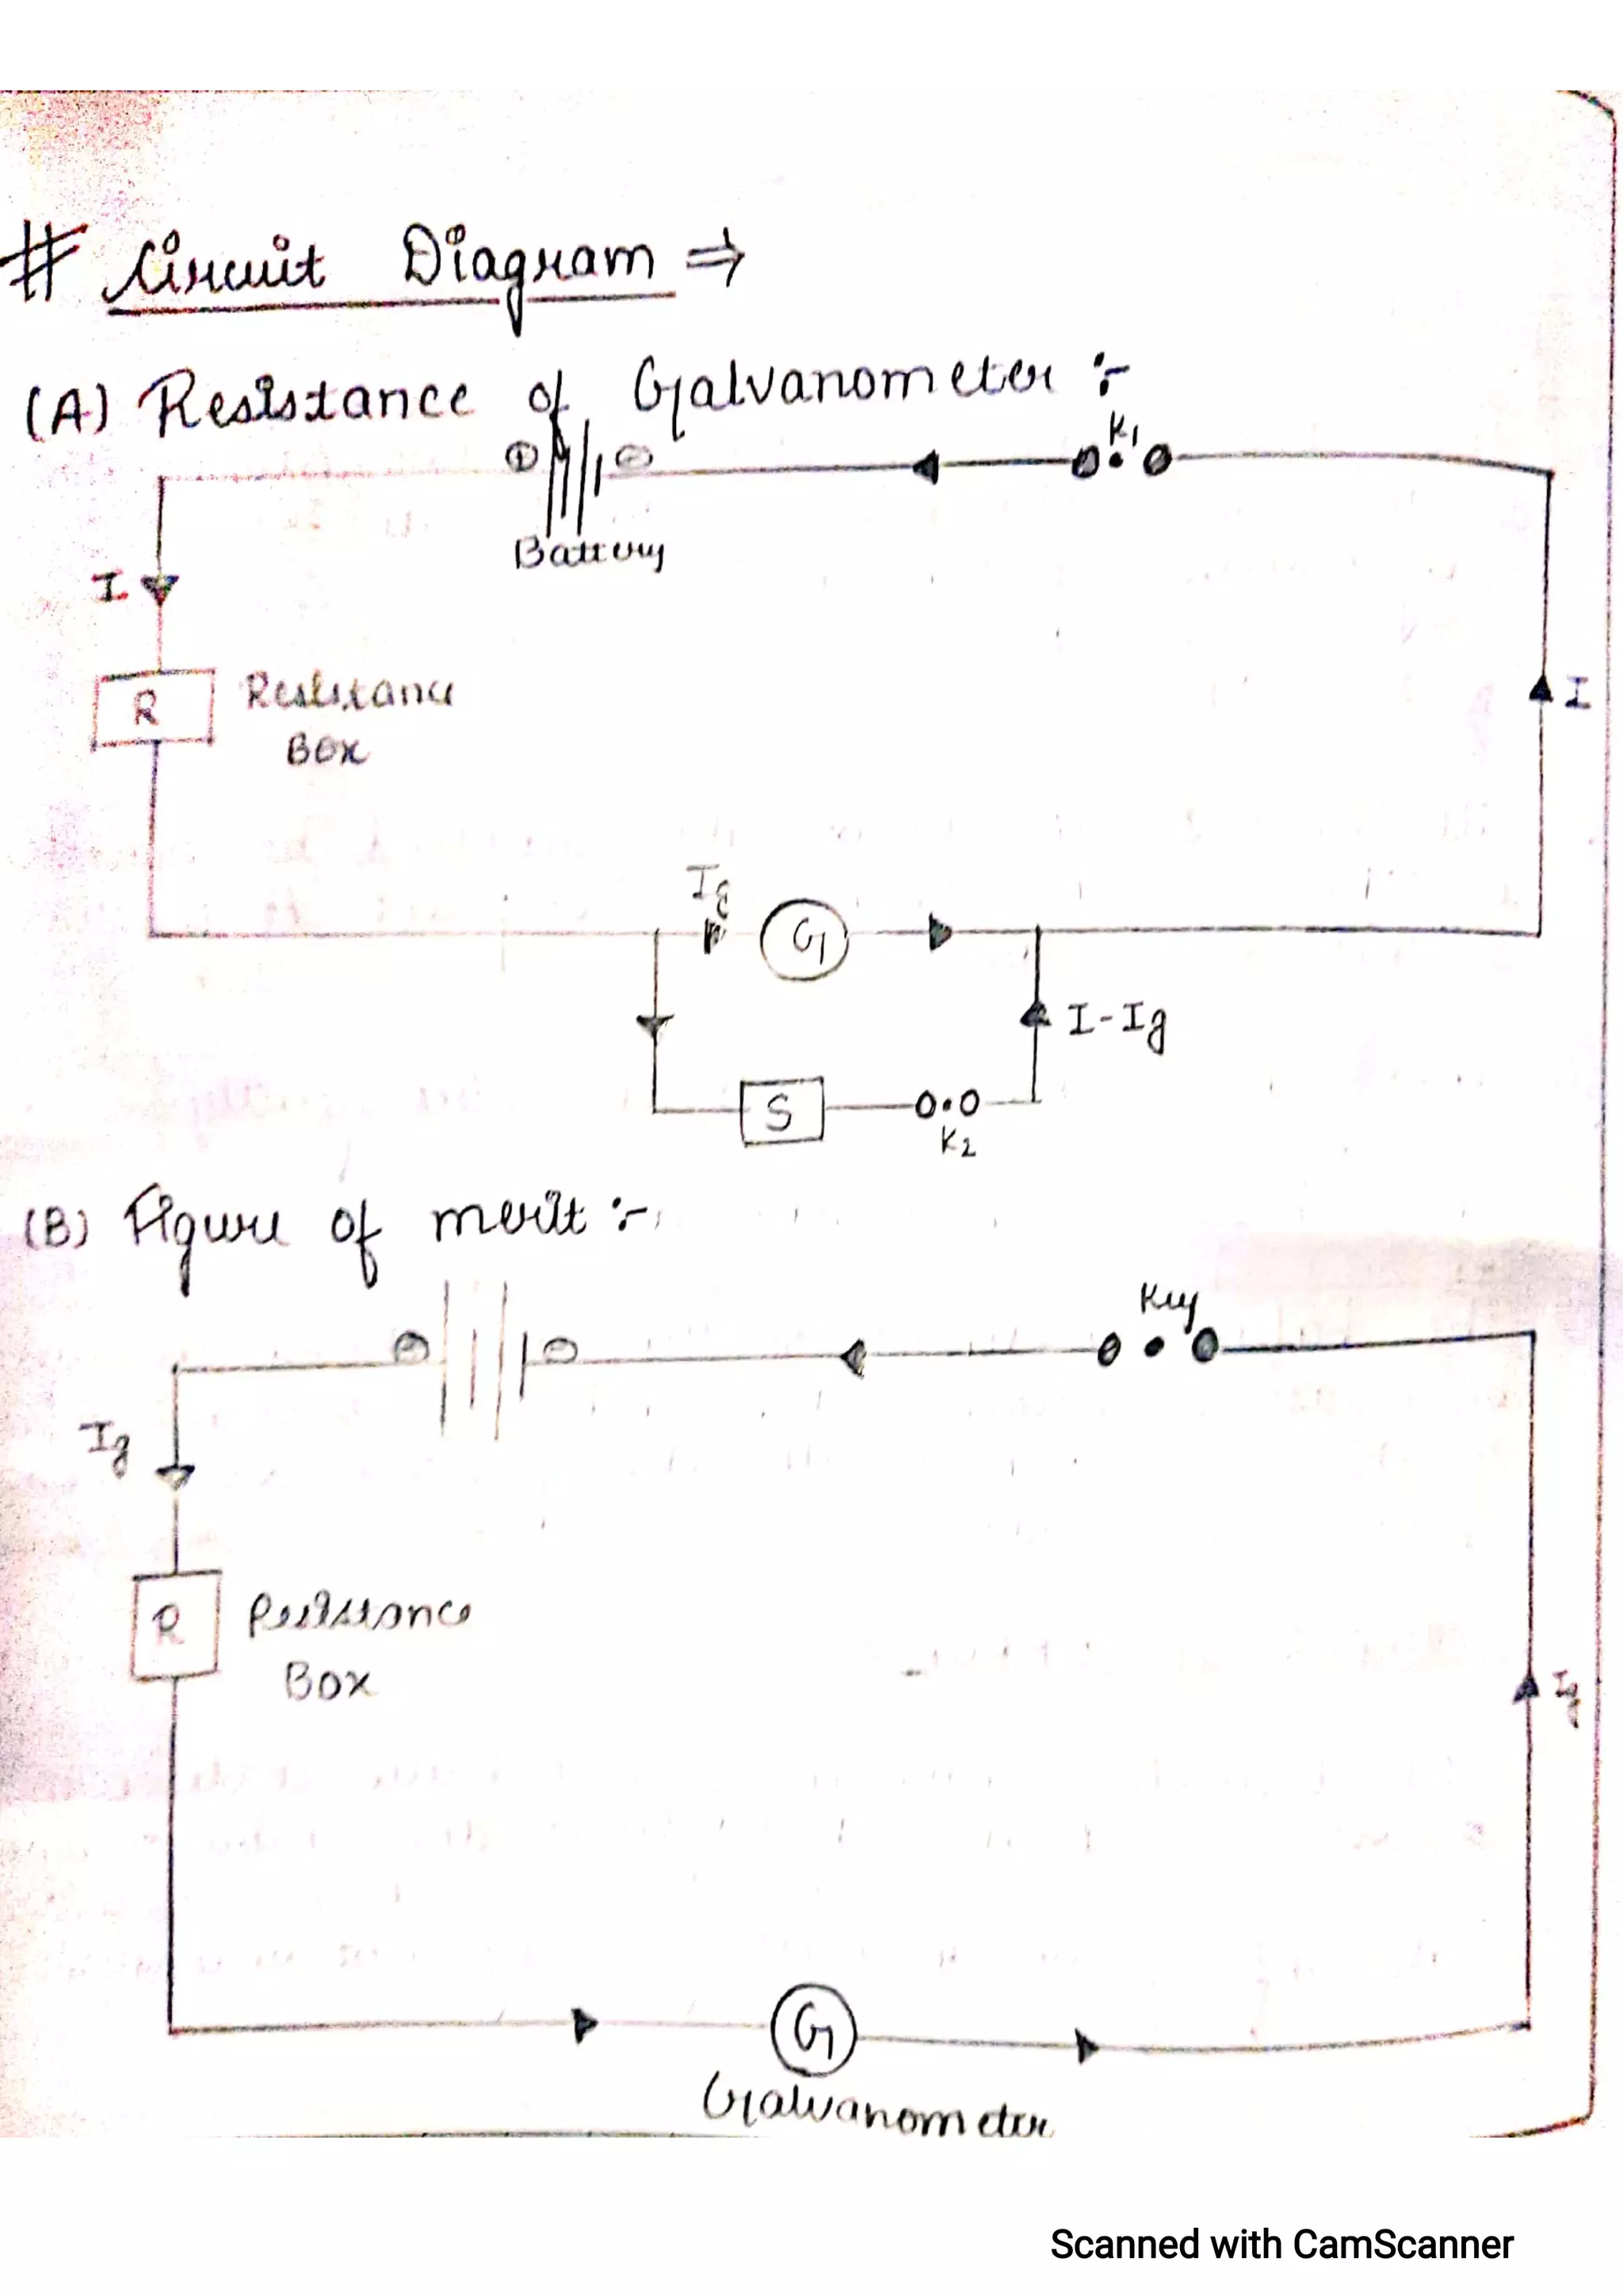 # Circuit Diagram ⇒
(A) Resistance of Galvanometer :-
K1
⊕ ⊖
Battery
I
R Resistance
Box
I
Ig
G
I-Ig
S
K2
(B) Figure of merit :-
Key
Ig
R Resistance
Box
Ig
G
Galvanometer
Scanned with CamScanner